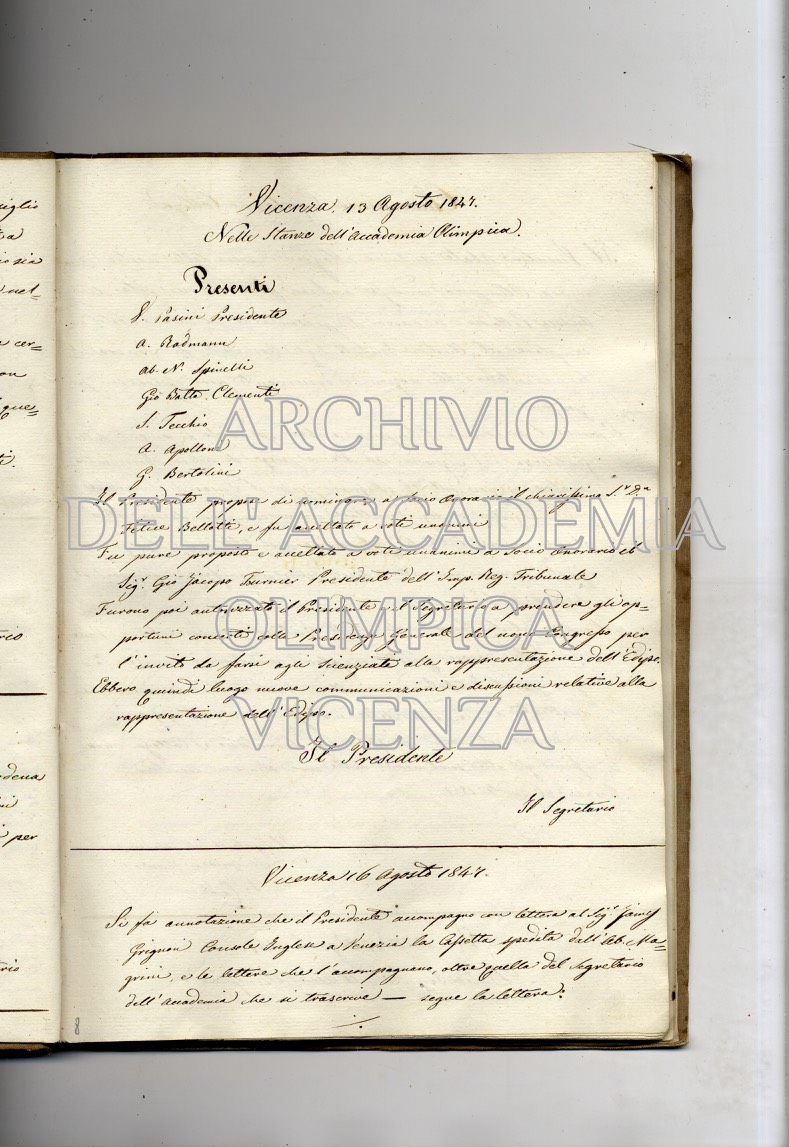 Vicenza. 13 Agosto 1847.
Nelle Stanze dell'Accademia Olimpica.
Presenti
V. Pasini Presidente
A. Rodmann
Ab. N. Spinelli
Giõ Batta. Clementi
S. Tecchio
A. Apolloni
G. Bertolini
Il Presidente propose di nominare a Socio Onorario il chiarissimo S.r D.n
Felice Bellotti, e fu accettato a voti unanimi
Fu pure proposto e accettato a voti unanimi a Socio Onorario il
Sig.r Giõ Jacopo Turnier Presidente dell'Imp. Reg. Tribunale
Furono poi autorizzati il Presidente e il Segretario a prendere gli op=
portuni concerti colla Presidenza Generale del nono Congresso per
l'invito da farsi agli Scienziati alla rappresentazione dell'Edipo.
Ebbero quindi luogo nuove communicazioni e discussioni relative alla
rappresentazione dell'Edipo.
Il Presidente
Il Segretario
Vicenza 16 Agosto 1847.
Si fa annotazione che il Presidente accompagnò con lettera al Sig.r James
Grignon Console Inglese a Venezia la Cassetta spedita dall'Ab. Ma=
grini, e le lettere che l'accompagnano, oltre quella del Segretario
dell'Accademia che si trascrive — segue la lettera:
8
ARCHIVIO
DELL'ACCADEMIA
OLIMPICA
VICENZA